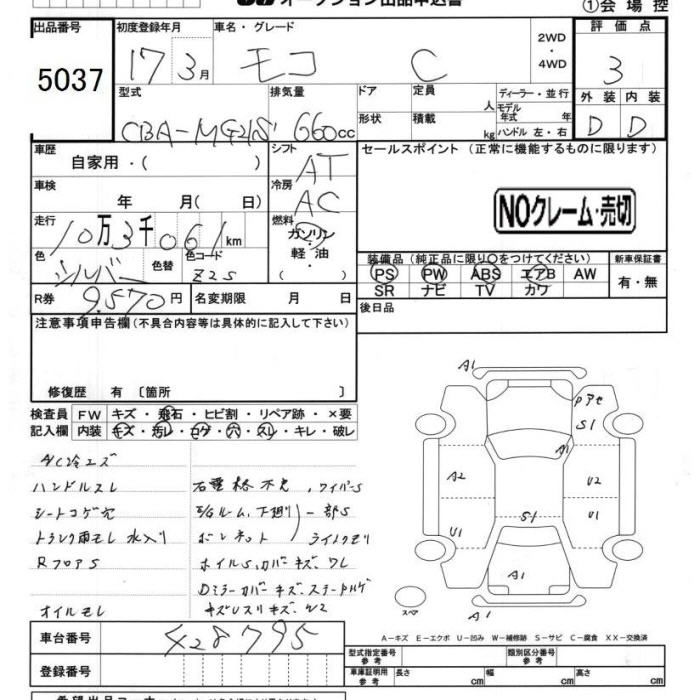 オークション出品申込書
①会場控
出品番号 初度登録年月 車名・グレード 2WD ・ 4WD 評価点
5037 17 3月 モコ C 3
型式 排気量 ドア 定員 人 ディーラー・並行 外装 内装
CBA-MG21S 660cc 形状 積載 kg モデル年式 年 ハンドル 左・右 D D
車歴 自家用・( ) シフト AT セールスポイント (正常に機能するものに限ります)
車検 年 月( 日) 冷房 AC
NOクレーム・売切
走行 10万3千061km 燃料 ガソリン・軽油・( )
色 シルバー 色替 色コード Z2S
装備品(純正品に限り○をつけてください) 新車保証書
PS PW ABS エアB AW 有・無
SR ナビ TV カワ
R券 9,570円 名変期限 月 日 後日品
注意事項申告欄(不具合内容等は具体的に記入して下さい)
修復歴 有〔箇所 〕
検査員 FW キズ・飛石・ヒビ割・リペア跡・×要
記入欄 内装 キズ・汚レ・コゲ・穴・スレ・キレ・破レ
A/C冷エズ
ハンドルスレ
シートコゲ穴
トランク雨モレ 水入り
RフロアS
オイルモレ
ワイパーS
下廻り 一部S
ボンネット ライトクモリ
ホイルS,カバーキズ、ワレ
Dミラーカバーキズ、
A1
S1
A1
A2 U2
U1 S1 U1
A1
スペア A1
A-キズ E-エクボ U-凹み W-補修跡 S-サビ C-腐食 XX-交換済
車台番号 428795
型式指定番号 参考 類別区分番号 参考
登録番号
車庫証明用 参考 長さ cm 幅 cm 高さ cm